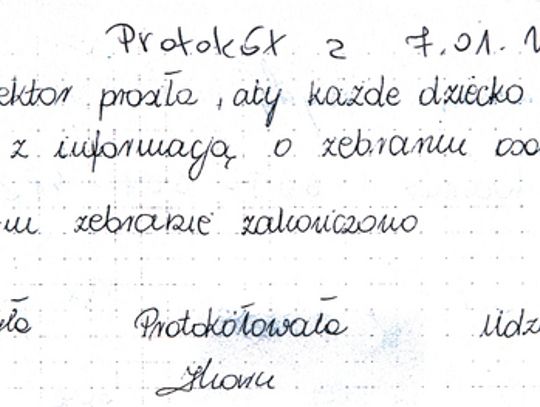 Protokół z 7.01.1
ektor prosiła, aby każde dziecko
z informacją o zebraniu oso
m zebranie zakończono
yła Protokółowała Udz